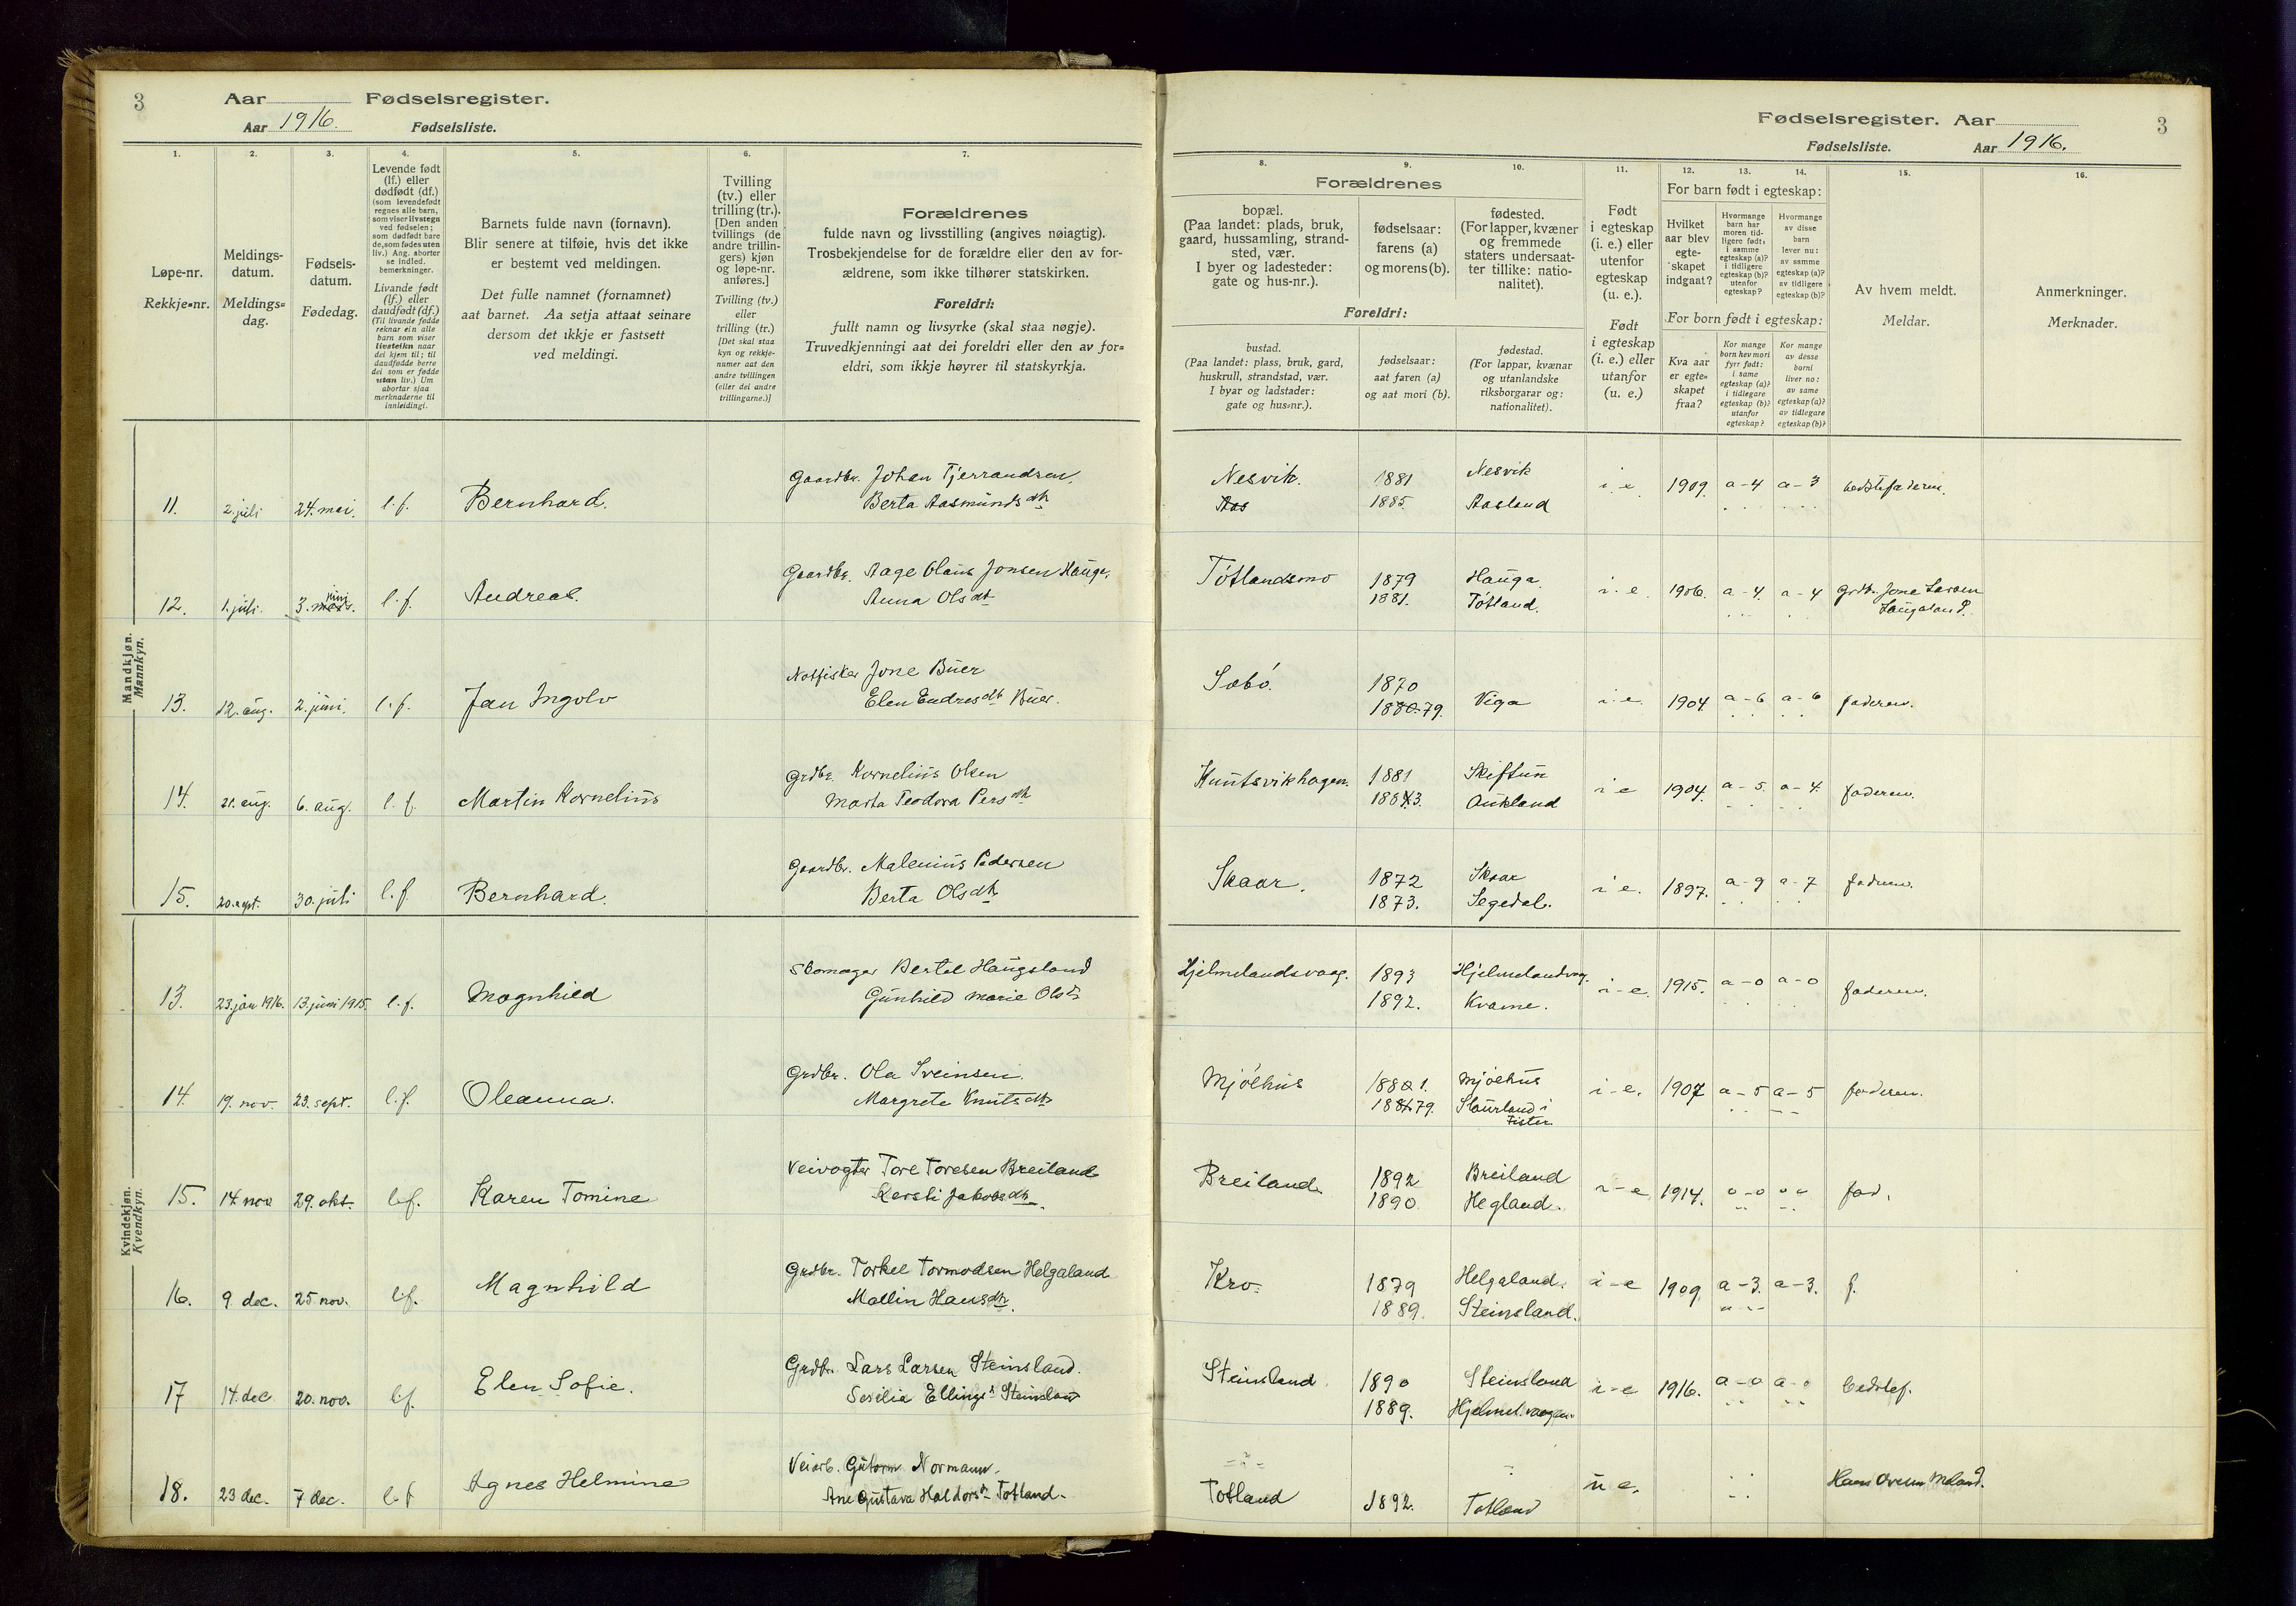 3
Aar Fødselsregister.
Aar 1916. Fødselsliste.
1. 2. 3. 4. 5. 6. 7.
Løpe-nr.
Rekkje-nr.
Meldings-
datum.
Meldings-
dag.
Fødsels-
datum.
Fødedag.
Levende født
(lf.) eller
dødfødt (df.)
(som levendefødt
regnes alle barn,
som viser livstegn
ved fødselen;
som dødfødt bare
de, som fødes uten
liv.) Ang. aborter
se indled.
bemerkninger.
Livande født
(lf.) eller
daudfødt (df.)
(Til livande fødde
reknar ein alle
barn som viser
livsteikn naar
dei kjem til; til
daudfødde berre
dei som er fødde
utan liv.) Um
abortar sjaa
merknaderne til
innleidingi.
Barnets fulde navn (fornavn).
Blir senere at tilføie, hvis det ikke
er bestemt ved meldingen.
Det fulle namnet (fornamnet)
aat barnet. Aa setja attaat seinare
dersom det ikkje er fastsett
ved meldingi.
Tvilling
(tv.) eller
trilling (tr.).
[Den anden
tvillings (de
andre trillin-
gers) kjøn
og løpe-nr.
anføres.]
Tvilling (tv.)
eller
trilling (tr.)
[Det skal staa
kyn og rekkje-
numer aat den
andre tvillingen
(eller dei andre
trillingarne.)]
Forældrenes
fulde navn og livsstilling (angives nøiagtig).
Trosbekjendelse for de forældre eller den av for-
ældrene, som ikke tilhører statskirken.
Foreldri:
fullt namn og livsyrke (skal staa nøgje).
Truvedkjenningi aat dei foreldri eller den av for-
eldri, som ikkje høyrer til statskyrkja.
Mandkjøn.
Mannkyn.
11. 2. juli 24. mai. l. f. Bernhard. Gaardbr. Johan Tjerrandsen.
Berta Aasmundsdtr
12. 1. juli. 3. mars. juni l. f. Andreas. Gaardbr. Aage Olaus Jonsen Hauga.
Anna Olsdtr
13. 12. aug. 2. juni. l. f. Jan Ingolv Notfisker Jone Buer
Elen Endresdtr Buer.
14. 21. aug. 6. aug. l. f. Martin Kornelius Grdbr. Kornelius Olsen
Marta Teodora Persdtr
15. 20. sept. 30. juli l. f. Bernhard. Gaardbr. Malenius Pedersen
Berta Olsdtr
Kvindekjøn.
Kvendkyn.
13. 23. jan 1916. 13. juni 1915. l. f. Magnhild Skomager Bertel Haugsland
Gunhild Marie Olsd.
14. 19. nov. 23. sept. l. f. Oleanna. Grdbr. Ola Sveinsen.
Margrete Knutsdtr
15. 14. nov. 29. okt. l. f. Karen Tomine Veivogter Tore Toresen Breiland
Kersti Jakobsdtr.
16. 9. dec. 25 nov. l. f. Magnhild Grdbr. Torkel Tormodsen Helgaland
Mallin Hansdtr.
17 14. dec. 20. nov. l. f. Elen Sofie. Grdbr. Lars Larsen Steinsland.
Serilia Ellings Steinsland
18. 23 dec. 7 dec. l. f Agnes Helmine Veiarb. Gutorm Normann.
Ane Gustava Haldorsd. Totland.
Fødselsregister. Aar 3
Fødselsliste. Aar 1916.
8. 9. 10. 11. 12. 13. 14. 15. 16.
Forældrenes
bopæl.
(Paa landet: plads, bruk,
gaard, hussamling, strand-
sted, vær.
I byer og ladesteder:
gate og hus-nr.).
fødselsaar:
farens (a)
og morens (b).
fødested.
(For lapper, kvæner
og fremmede
staters undersaat-
ter tillike: natio-
nalitet).
Foreldri:
bustad.
(Paa landet: plass, bruk, gard,
huskrull, strandstad, vær.
I byar og ladstader:
gate og hus-nr.).
fødselsaar:
aat faren (a)
og aat mori (b).
fødestad.
(For lappar, kvænar
og utanlandske
riksborgarar og:
nationalitet).
Født
i egteskap
(i. e.) eller
utenfor
egteskap
(u. e.).
Født
i egteskap
(i. e.) eller
utanfor
(u. e.)
For barn født i egteskap:
Hvilket
aar blev
egte-
skapet
indgaat?
Hvormange
barn har
moren tid-
ligere født:
i samme
egteskap (a)?
i tidligere
egteskap (b)?
utenfor
egteskap?
Hvormange
av disse
barn
lever nu:
av samme
egteskap (a)?
av tidligere
egteskap (b)?
For born født i egteskap:
Kva aar
er egte-
skapet
fraa?
Kor mange
born hev mori
fyrr født:
i same
egteskap (a)?
i tidlegare
egteskap (b)?
utanfor
egteskap?
Kor mange
av desse
borni
liver no:
av same
egteskap (a)?
av tidlegare
egteskap (b)?
Av hvem meldt.
Meldar.
Anmerkninger.
Merknader.
Nesvik. 1881 Nesvik i. e. 1909. a-4 a-3 bedstefaderen.
Aas 1885. Aasland
Tøtlandsmo 1879 Hauga. i. e. 1906. a-4. a-4 Grdbr. Jone Larsen
1881. Tøtland. Laugaland.
Sæbø. 1870 i. e. 1904 a-6 a-6 faderen.
1880.79. Viga
Kuntsvikhagen. 1881 Skiftun i e 1904. a-5. a-4. faderen.
1884 3. Aukland
Skaar. 1872 Skaar i e. 1897. a-9 a-7 faderen.
1873. Segedal.
Hjelmelandsvaag. 1893 Hjelmelandvag. i-e. 1915. a-0 a-0 faderen.
1892. Kvame.
Mjølhus 1880 1. Mjølhus i-e. 1907 a-5 a-5 faderen.
188 79. Staurland i
Fister
Breiland. 1892 Breiland i-e 1914. 0-0 0 0 fad.
1890 Hegland.
Kro 1879 Helgaland. i-e 1909 a-3. a-3. f.
1889. Steinsland.
Steinsland 1890 Steinsland i-e 1916. a-0 a-0 bedstef.
1889. Hjelmel.vaagen.
-?-
Totland 1892. Totland u e. Hans Ovesen Meland.